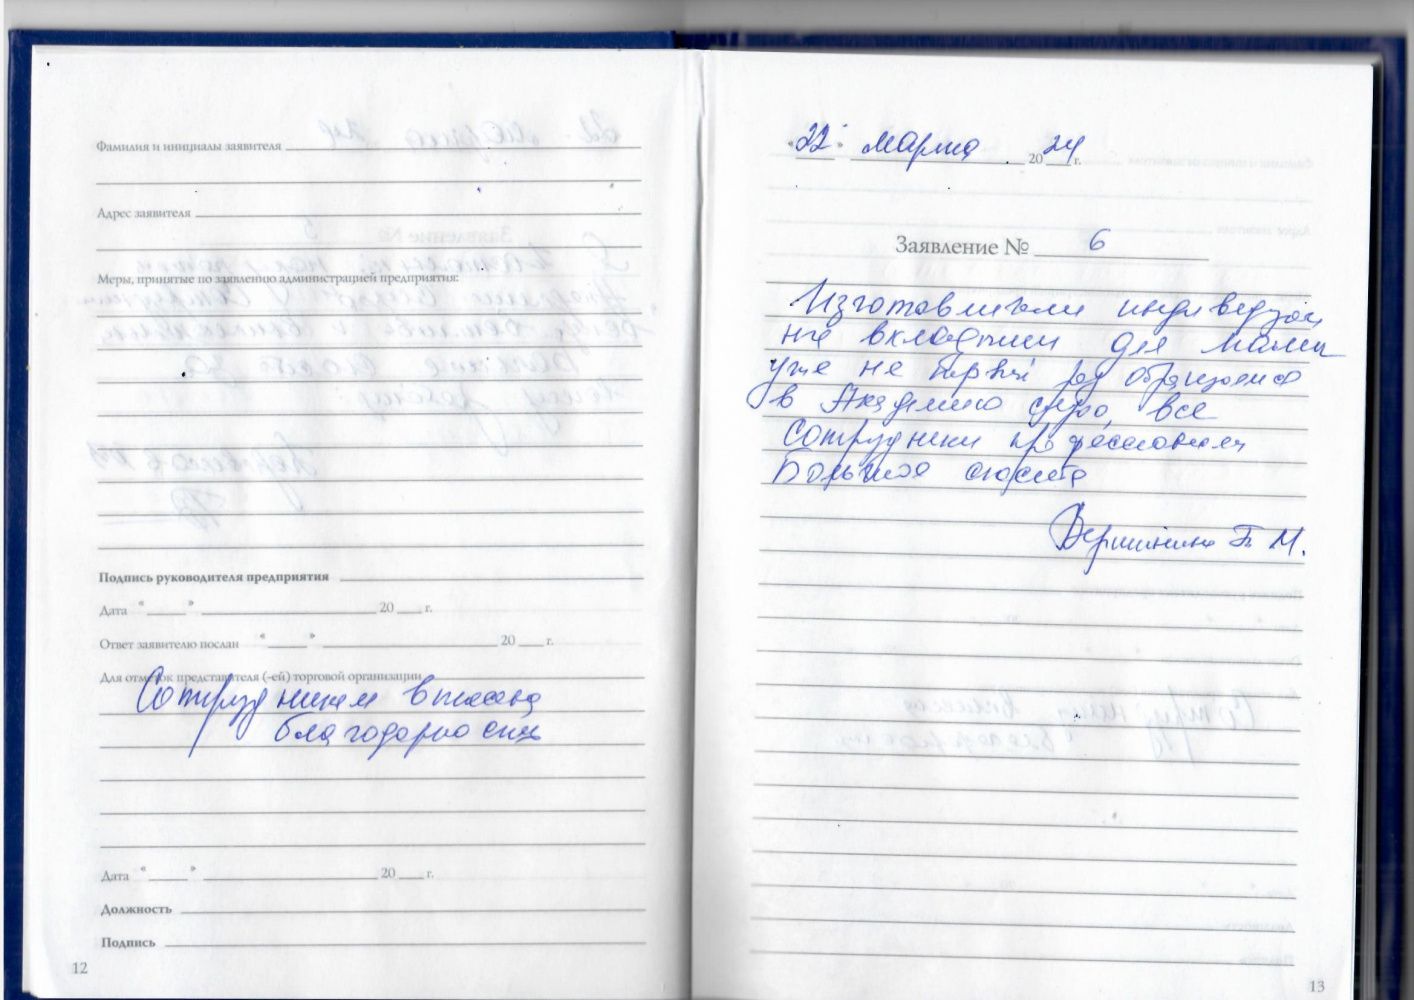 Фамилия и инициалы заявителя
Адрес заявителя
Меры, принятые по заявлению администрацией предприятия:
Подпись руководителя предприятия
Дата “ ” 20 г.
Ответ заявителю послан “ ” 20 г.
Для отметок представителя (-ей) торговой организации
Сотрудникам вынесена
благодарность
Дата “ ” 20 г.
Должность
Подпись
12
“22” марта 2024 г.
Заявление № 6
Изготовили индивидуаль
ные вкладыши для мамы
уже не первый раз обращаемся
в Академию слуха, все
сотрудники профессионалы
Большое спасибо
Вершинина Т. М.
13